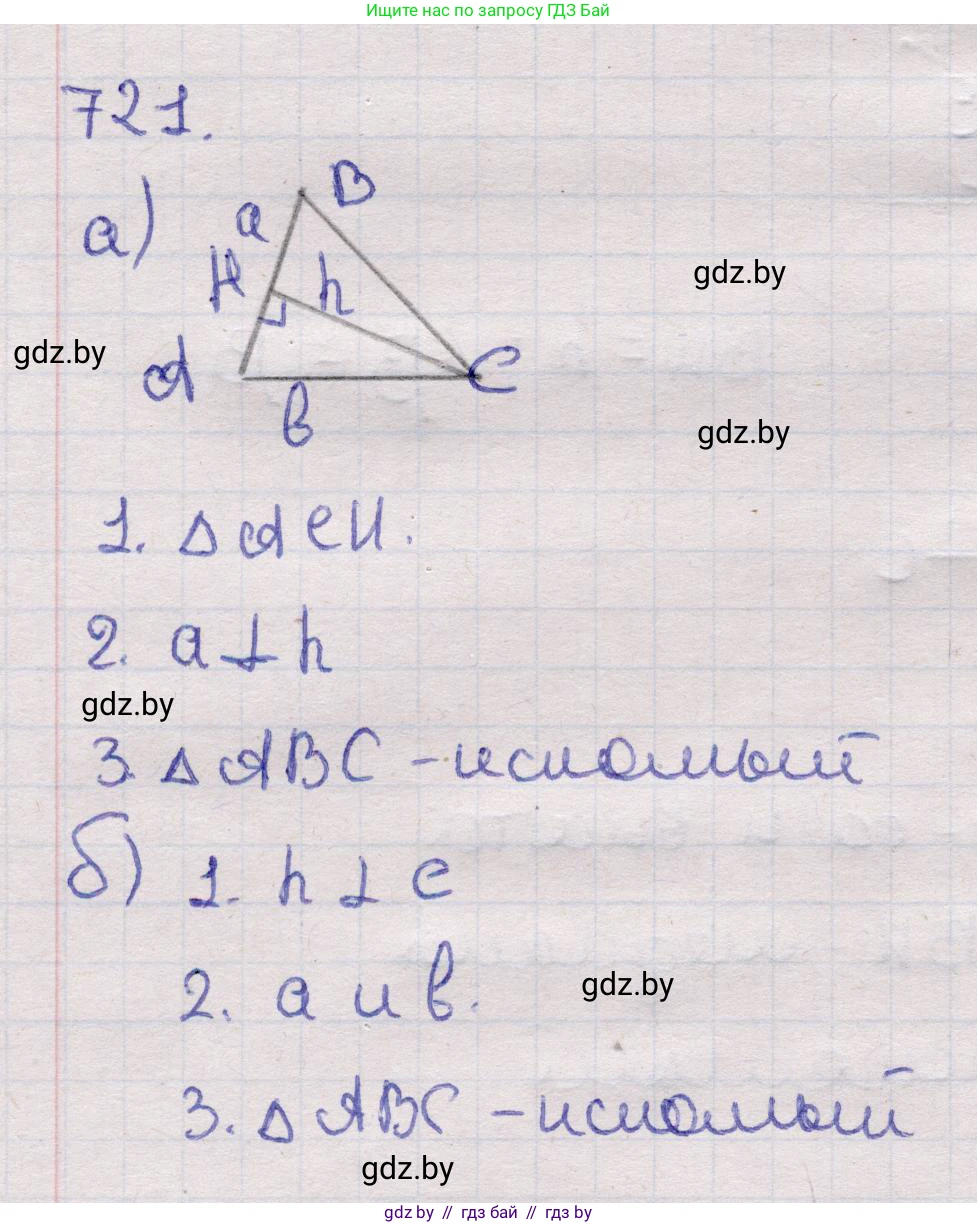 Ищите нас по запросу ГДЗ Бай
721.
а)
B
a
H
h
gdz.by
gdz.by
A
C
в
gdz.by
1. △ ACH.
2. a ⊥ h
gdz.by
3. △ ABC – искомый
б) 1. h ⊥ c
2. a и в.
gdz.by
3. △ ABC – искомый
gdz.by
gdz.by // гдз бай // гдз by